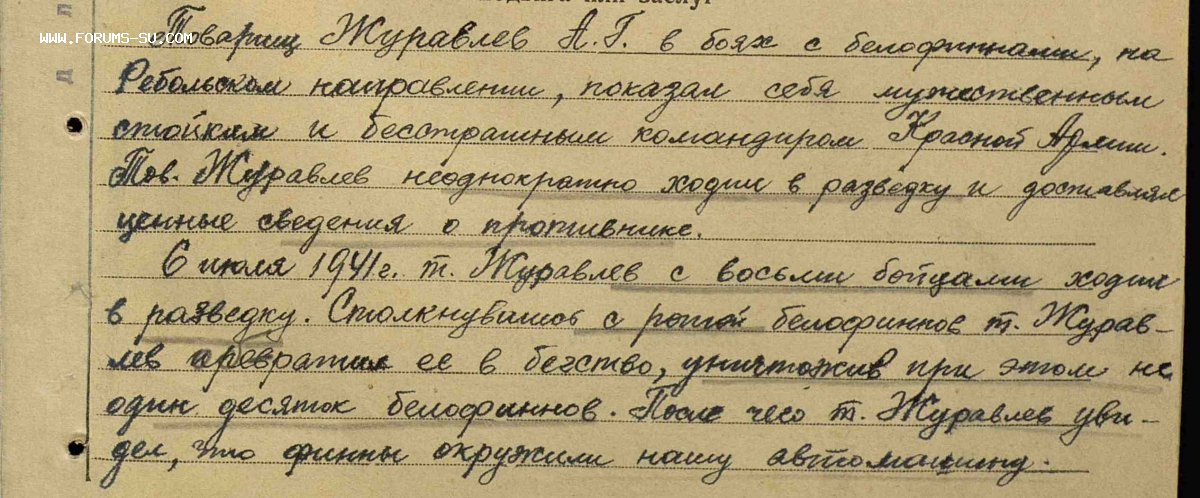 подвига или заслуг
WWW.FORUMS-SU.COM
Товарищ Журавлев А.Г. в боях с белофиннами, на
Ребольском направлении, показал себя мужественным
стойким и бесстрашным командиром Красной Армии.
Тов. Журавлев неоднократно ходил в разведку и доставлял
ценные сведения о противнике.
6 июля 1941г. т. Журавлев с восьми бойцами ходил
в разведку. Столкнувшись с ротой белофиннов т. Журав-
лев превратил ее в бегство, уничтожив при этом не
один десяток белофиннов. После чего т. Журавлев уви-
дел, что финны окружили нашу автомашину.